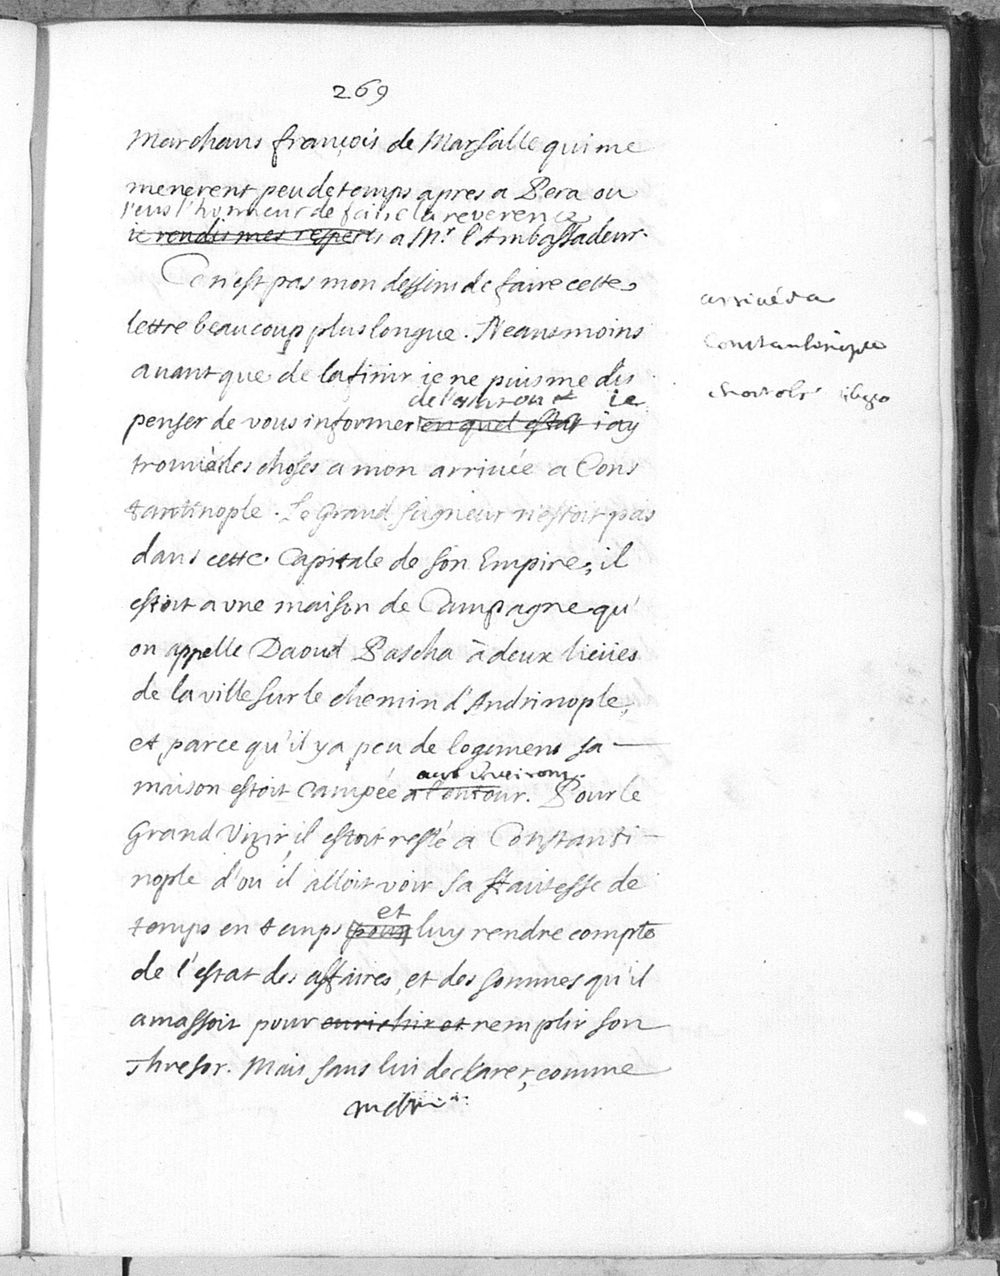 269
Marchans françois de Marsalle qui me
menerent peu de temps apres a Pera ou
j'eus l'honneur de faire la reverence
ie rendis mes respects a Mr. l'Ambassadeur.
Ce n'est pas mon dessein de faire cette
lettre beaucoup plus longue. Neantmoins
avant que de la finir ie ne puis me dis
de l'estat ou ie
penser de vous informer en quel estat i'ay
trouvé les choses a mon arrivée a Cons
tantinople. Le Grand Seigneur n'estoit pas
dans cette Capitale de son Empire, il
estoit a une maison de Campagne qu'
on appelle Daout Pascha à deux lieües
de la ville sur le chemin d'Andrinople,
et parce qu'il y a peu de logemens sa
aux environs.
maison estoit campée a l'entour. Pour le
Grand Vizir, il estoit resté a Constanti
nople d'ou il alloit voir sa Hautesse de
et
temps en temps pour luy rendre compte
de l'estat des affaires, et des sommes qu'il
amassoit pour enrichir et remplir son
Thresor. Mais sans lui declarer, comme
arrivée a
Constantinople